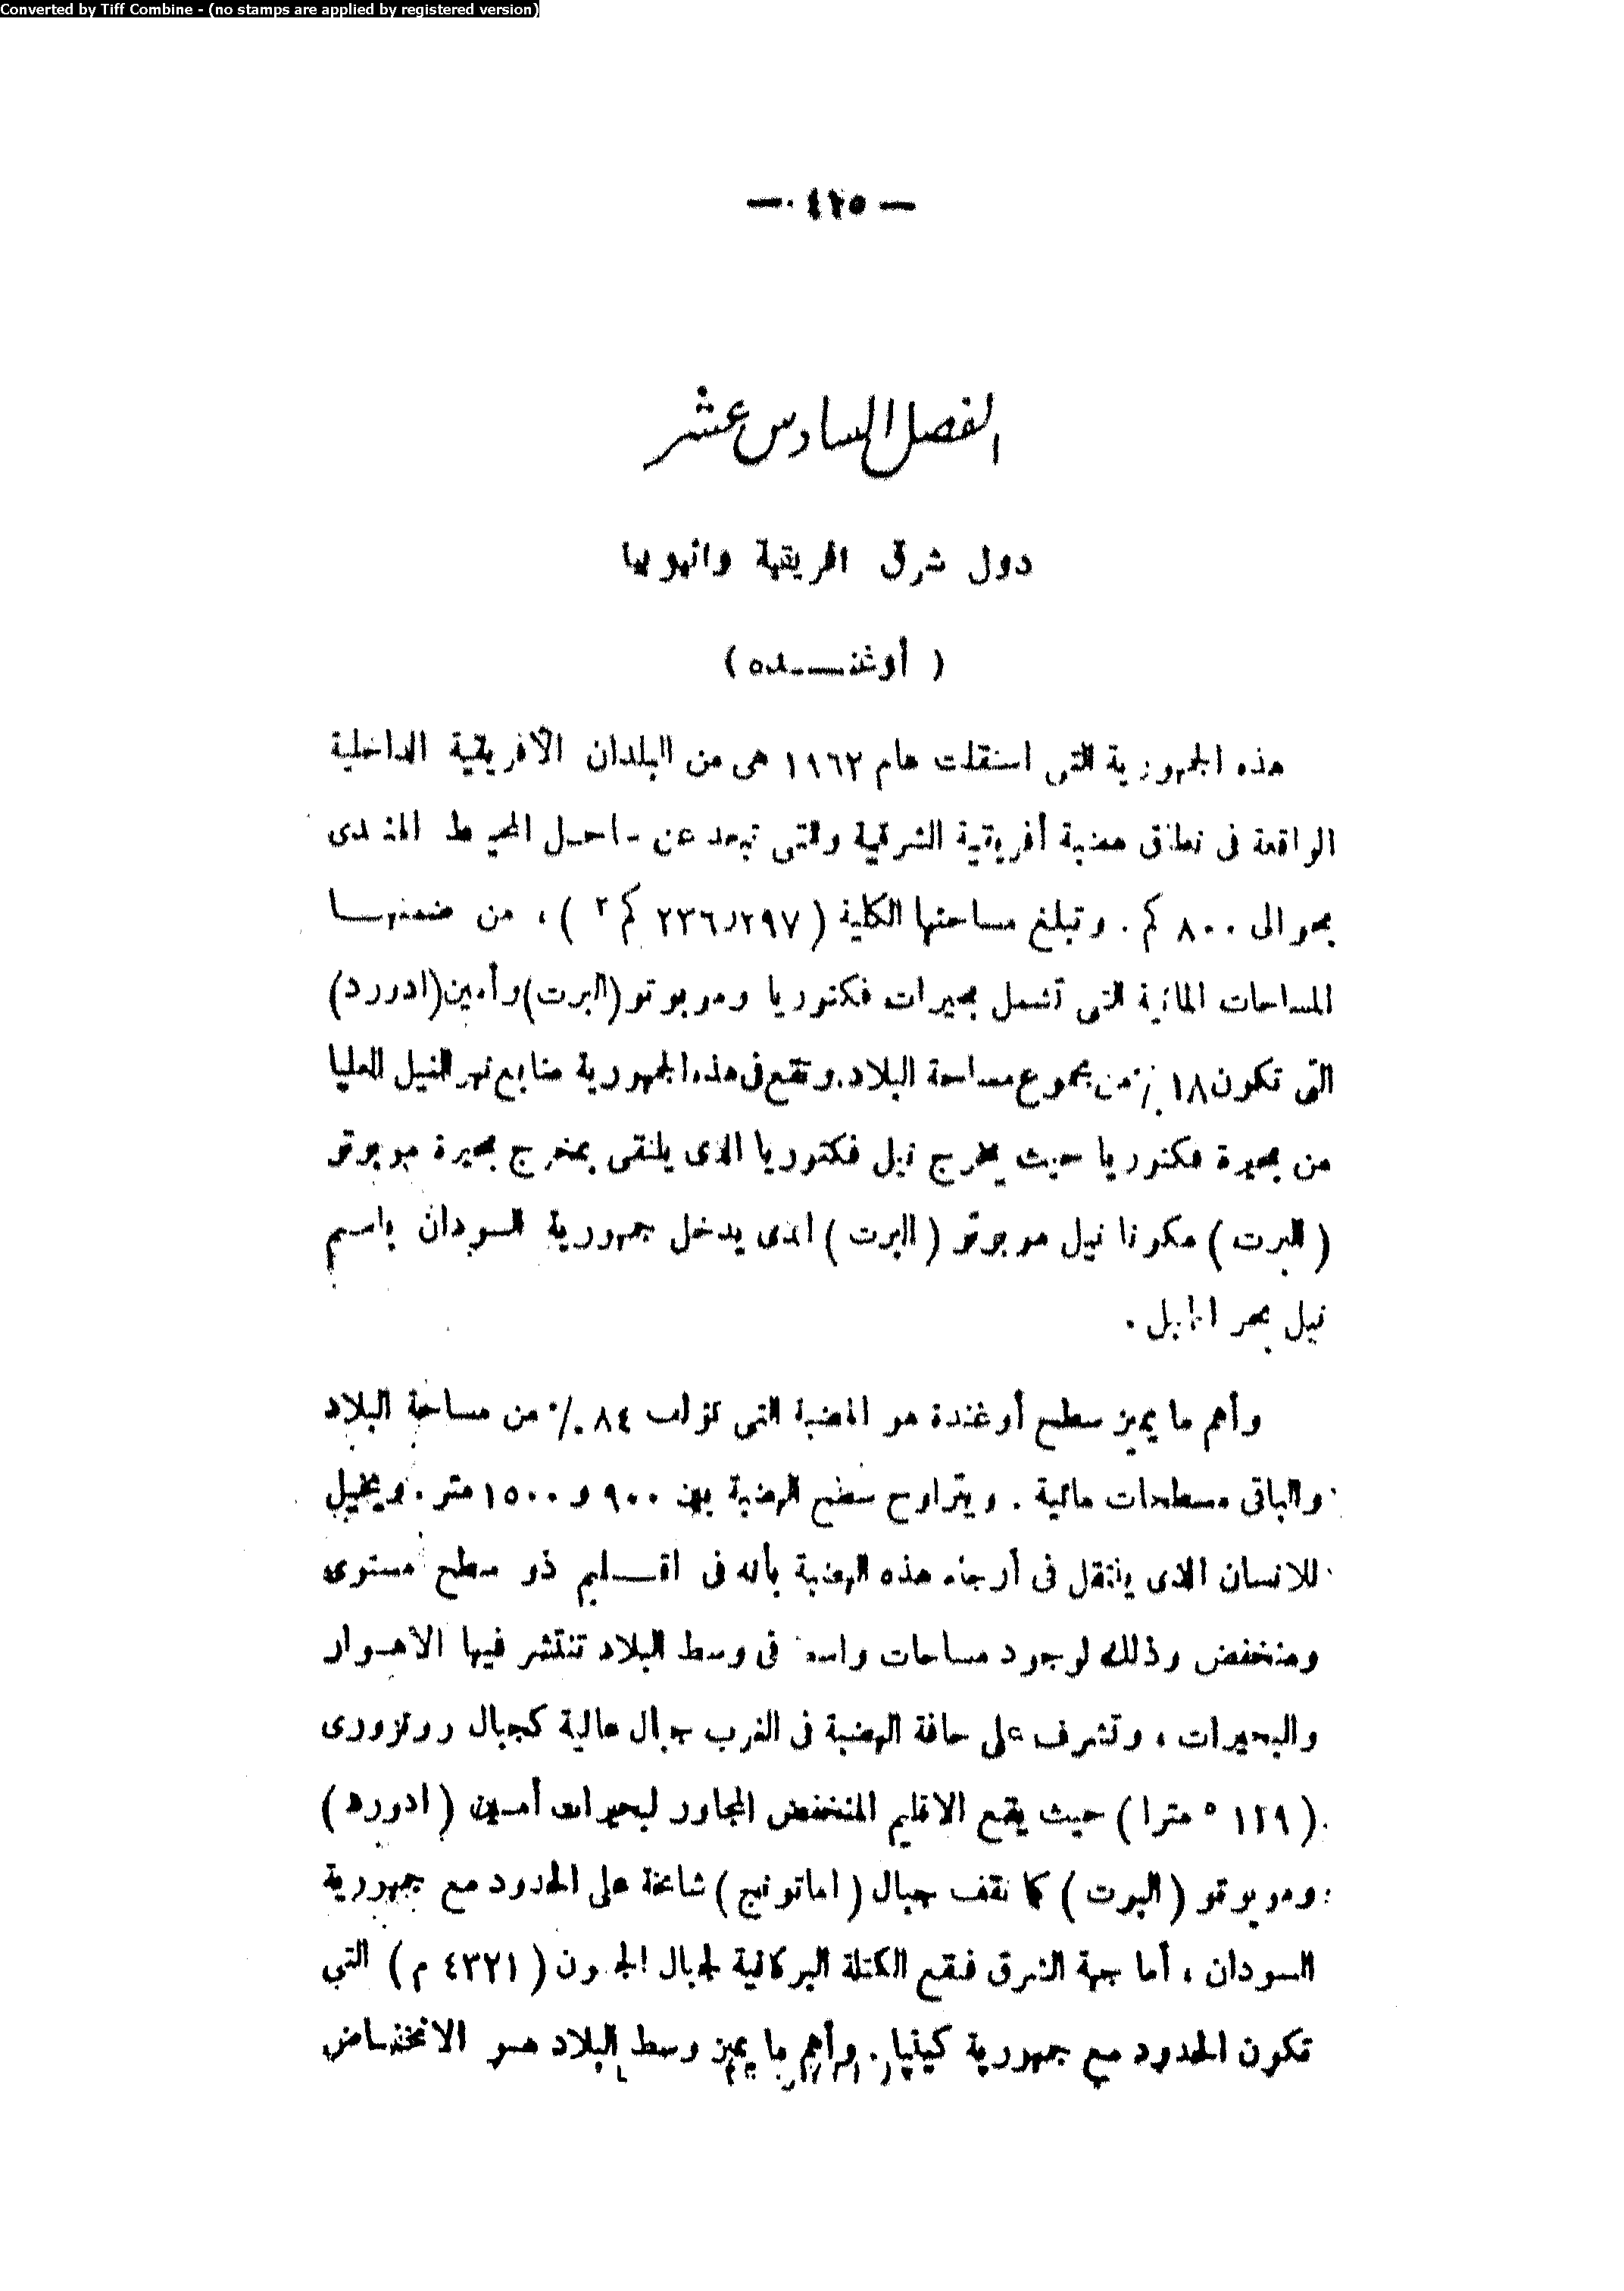 Converted by Tiff Combine - (no stamps are applied by registered version)
— ٤٢٥ —
الفصل السادس عشر
دول شرق افريقية واثيوبيا
( أوغنـــده )
هذه الجمهورية التى استقلت عام ١٩٦٢ هى من البلدان الأفريقية الداخلية
الواقعة فى نطاق هضبة أفريقية الشرقية والتى تبعد عن ساحل المحيط الهندى
بحوالى ٨٠٠ كم . وتبلغ مساحتها الكلية ( ٢٣٦٫٢٩٧ كم٢ ) ، من ضمنهـا
المساحات المائية التى تشمل بحيرات فكتوريا وموبوتو (البرت) وأمين (ادورد)
التى تكون ١٨٪ من مجموع مساحة البلاد . وتقع فى هذه الجمهورية منابع نهر النيل العليا
من بحيرة فكتوريا حيث يخرج نيل فكتوريا الذى يلتقى بمخرج بحيرة موبوتو
( البرت ) مكونا نيل موبوتو ( البرت ) الذى يدخل جمهورية السودان باسم
نيل بحر الجبل .
وأهم ما يميز سطح أوغندة هو الهضبة التى تؤلف ٨٤٪ من مساحة البلاد
والباقى مسطحات مائية . ويتراوح سطح الهضبة بين ٩٠٠ و ١٥٠٠ متر . ويخيل
للانسان الذى ينتقل فى أرجاء هذه الهضبة بأنه فى اقـليم ذو سطح مستوى
ومنخفض وذلك لوجود مساحات واسعة فى وسط البلاد تنتشر فيها الاهـوار
والبحيرات ، وتشرف على حافة الهضبة فى الغرب جبال عالية كجبال رونزورى
( ٥١٢٩ مترا ) حيث يقع الاقليم المنخفض المجاور لبحيرات أمـين ( ادورد )
وموبوتو ( البرت ) كما تقف جبال ( اماتونج ) شامخة على الحدود مع جمهورية
السودان ، أما جهة الشرق فتقع الكتلة البركانية لجبال الجون ( ٤٣٢١ م ) التي
تكون الحدود مع جمهورية كينيا . وأهم ما يميز وسط البلاد هـو الانخفـاض